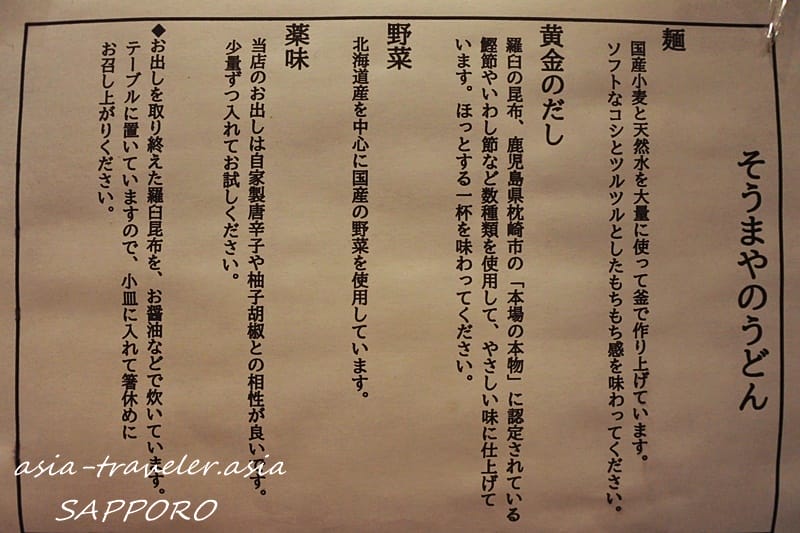 そうまやのうどん
麺
国産小麦と天然水を大量に使って釜で作り上げています。
ソフトなコシとツルツルとしたもちもち感を味わってください。
黄金のだし
羅臼の昆布、鹿児島県枕崎市の「本場の本物」に認定されている
鰹節やいわし節など数種類を使用して、やさしい味に仕上げて
います。ほっとする一杯を味わってください。
野菜
北海道産を中心に国産の野菜を使用しています。
薬味
当店のお出しは自家製唐辛子や柚子胡椒との相性が良いです。
少量ずつ入れてお試しください。
◆お出しを取り終えた羅臼昆布を、お醤油などで炊いています。
テーブルに置いていますので、小皿に入れて箸休めに
お召し上がりください。
asia-traveler.asia
SAPPORO